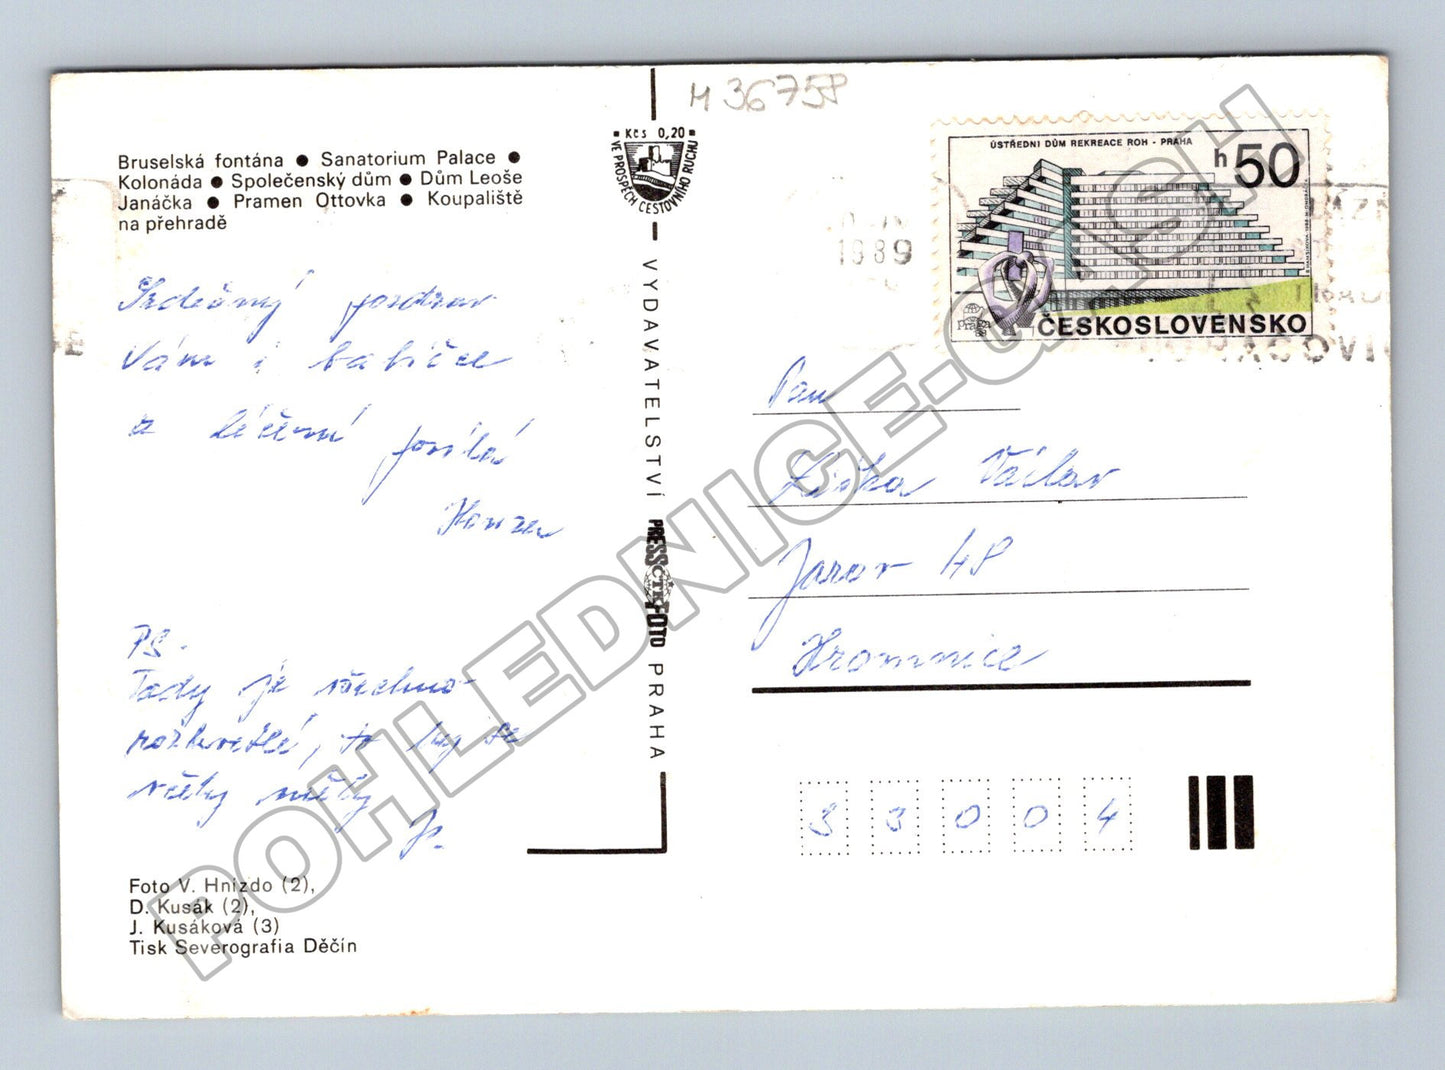 M 36758
Bruselská fontána ● Sanatorium Palace ●
Kolonáda ● Společenský dům ● Dům Leoše
Janáčka ● Pramen Ottovka ● Koupaliště
na přehradě
Srdečný pozdrav
Vám i babičce
z léčení posílá
Honza
PS.
Tady je všechno
rozkvetlé, to by se
včely měly
Foto V. Hnízdo (2),
D. Kusák (2),
J. Kusáková (3)
Tisk Severografia Děčín
Kčs 0,20
VE PROSPĚCH CESTOVNÍHO RUCHU
VYDAVATELSTVÍ PRESSFOTO PRAHA
ČTK
1989
ÚSTŘEDNÍ DŮM REKREACE ROH - PRAHA
h50
Praha
ČESKOSLOVENSKO
Pan
Liška Václav
Žarov 48
Hromnice
33004
POHLEDNICE.CASH